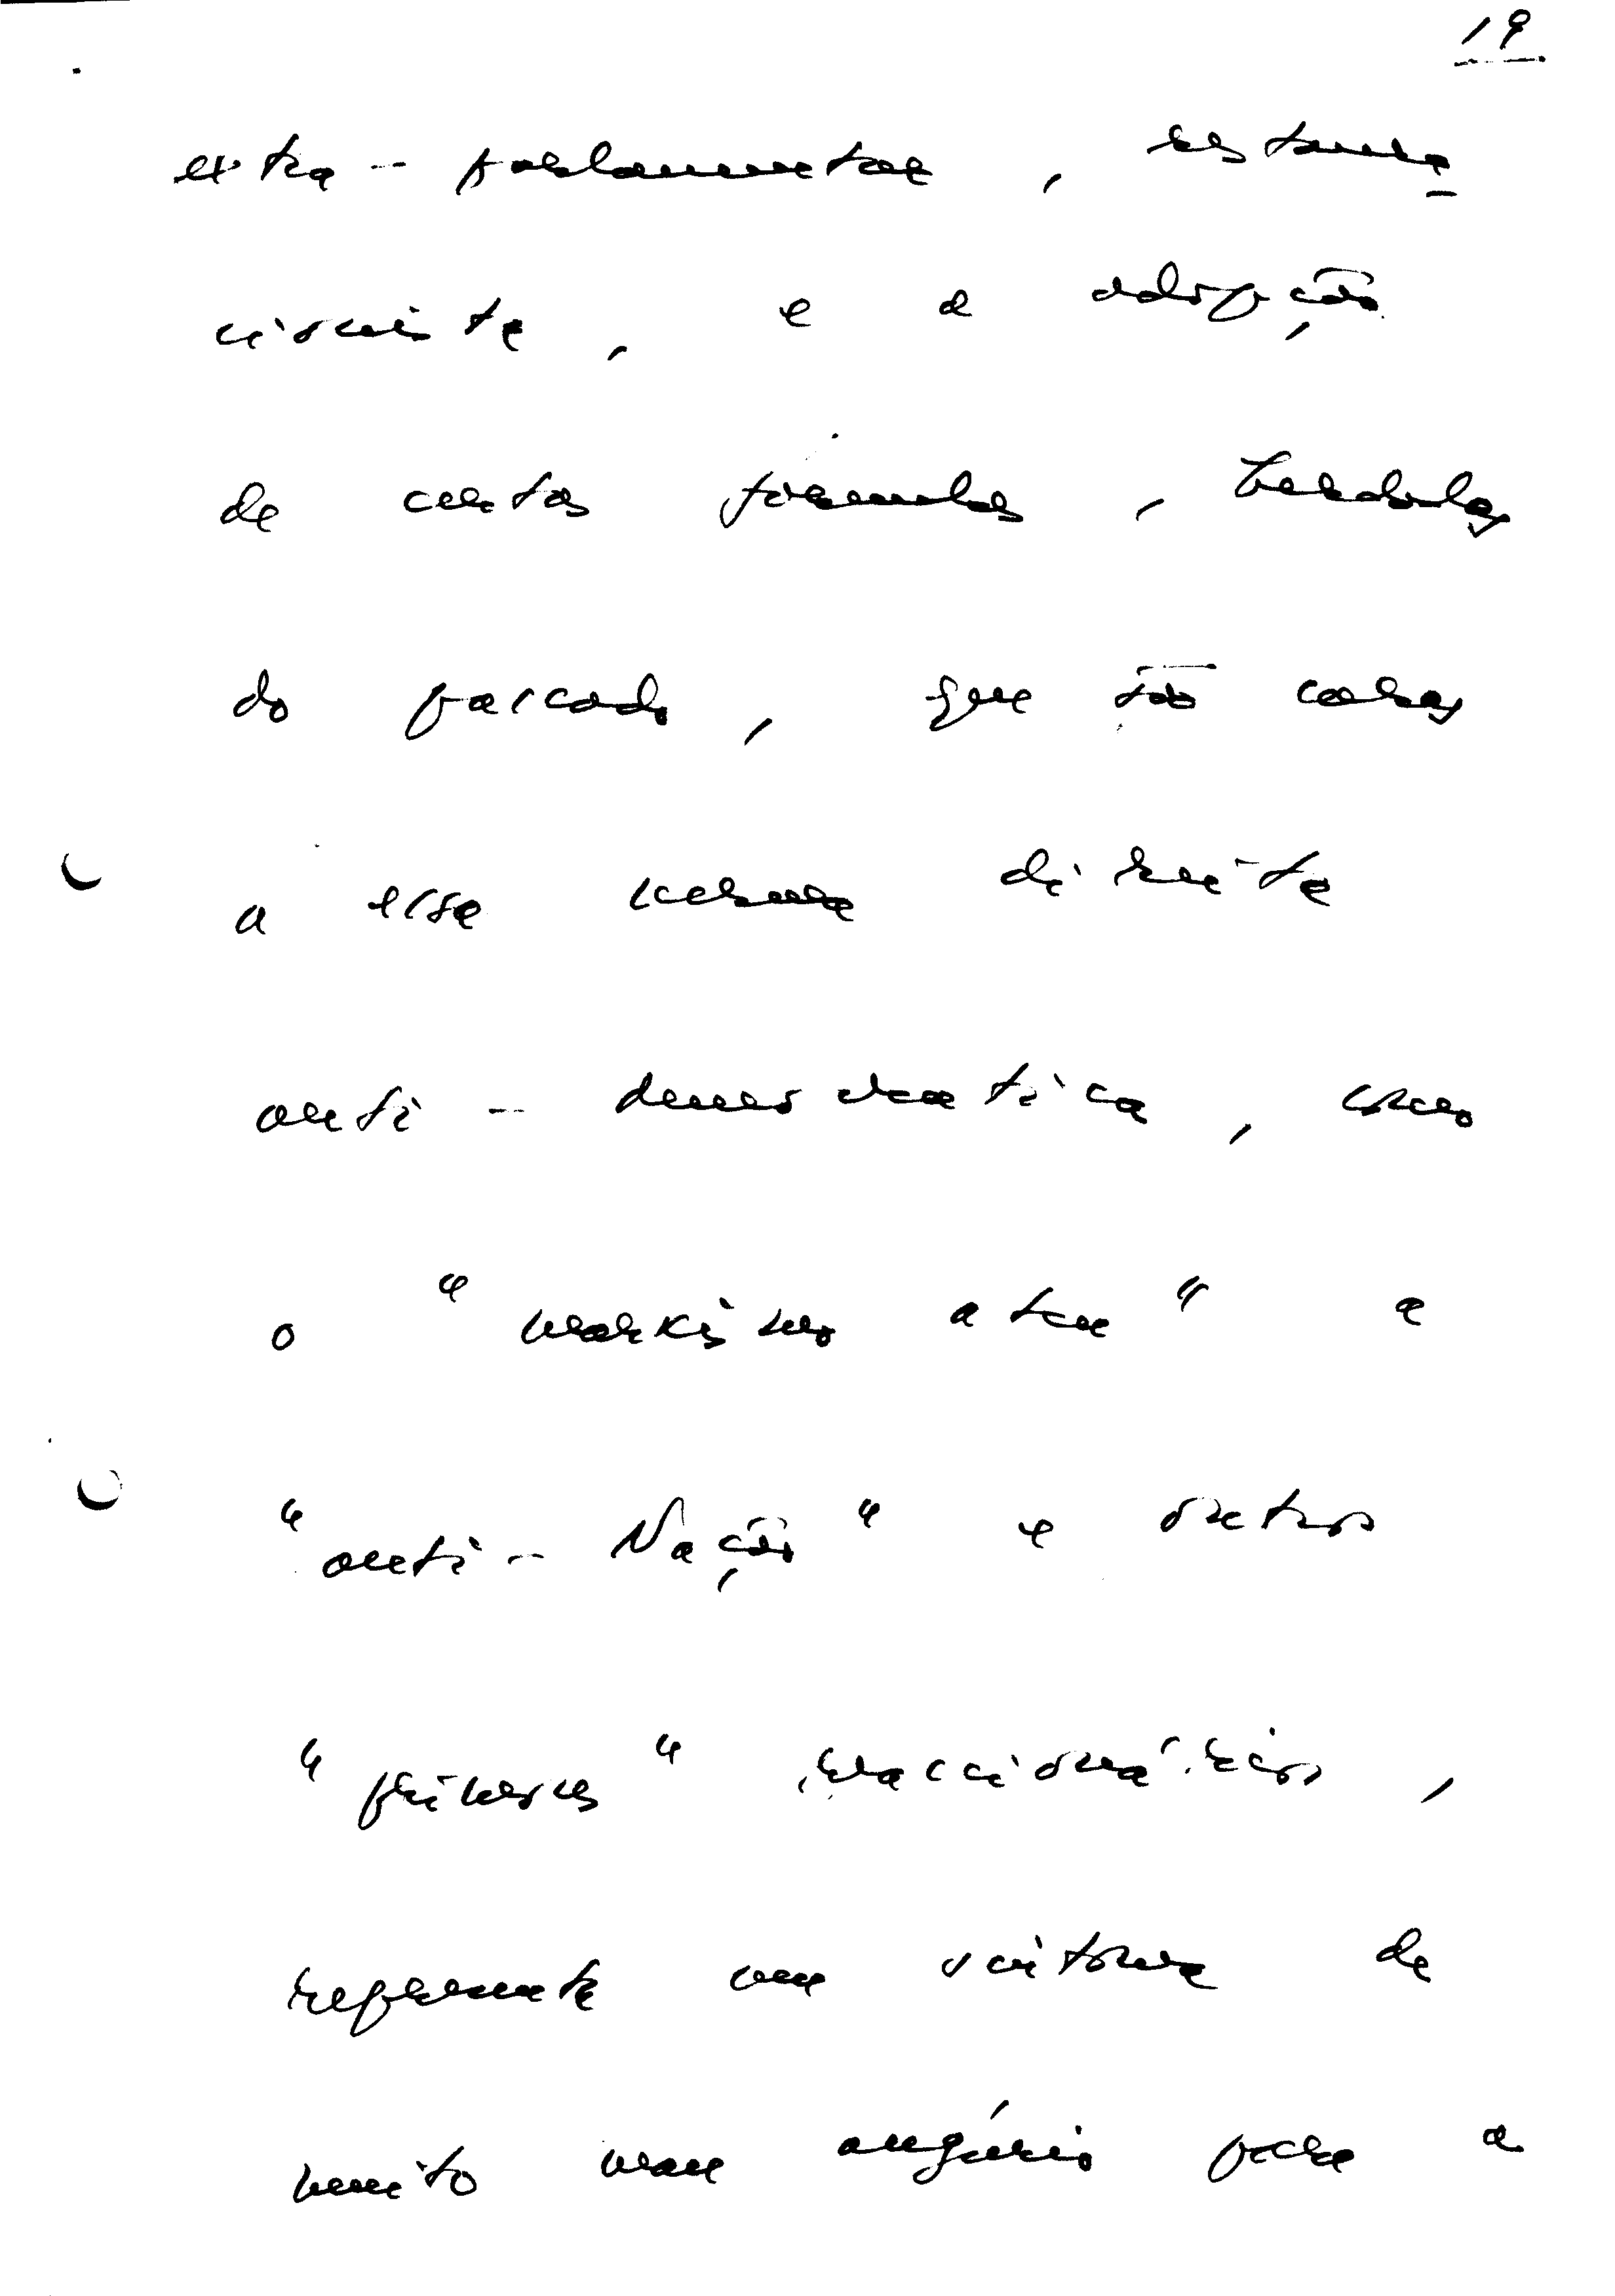 19
extra-parlamentar, restaura
cionista, e a adopção
de certas fórmulas, herdadas
do passado, que são caras
a essa mesma direita
anti-democrática, como
o "marxismo ateu" e a
"anti-Nação" e outros
"primores" reaccionários,
representa um sintoma de
muito mau augúrio para a